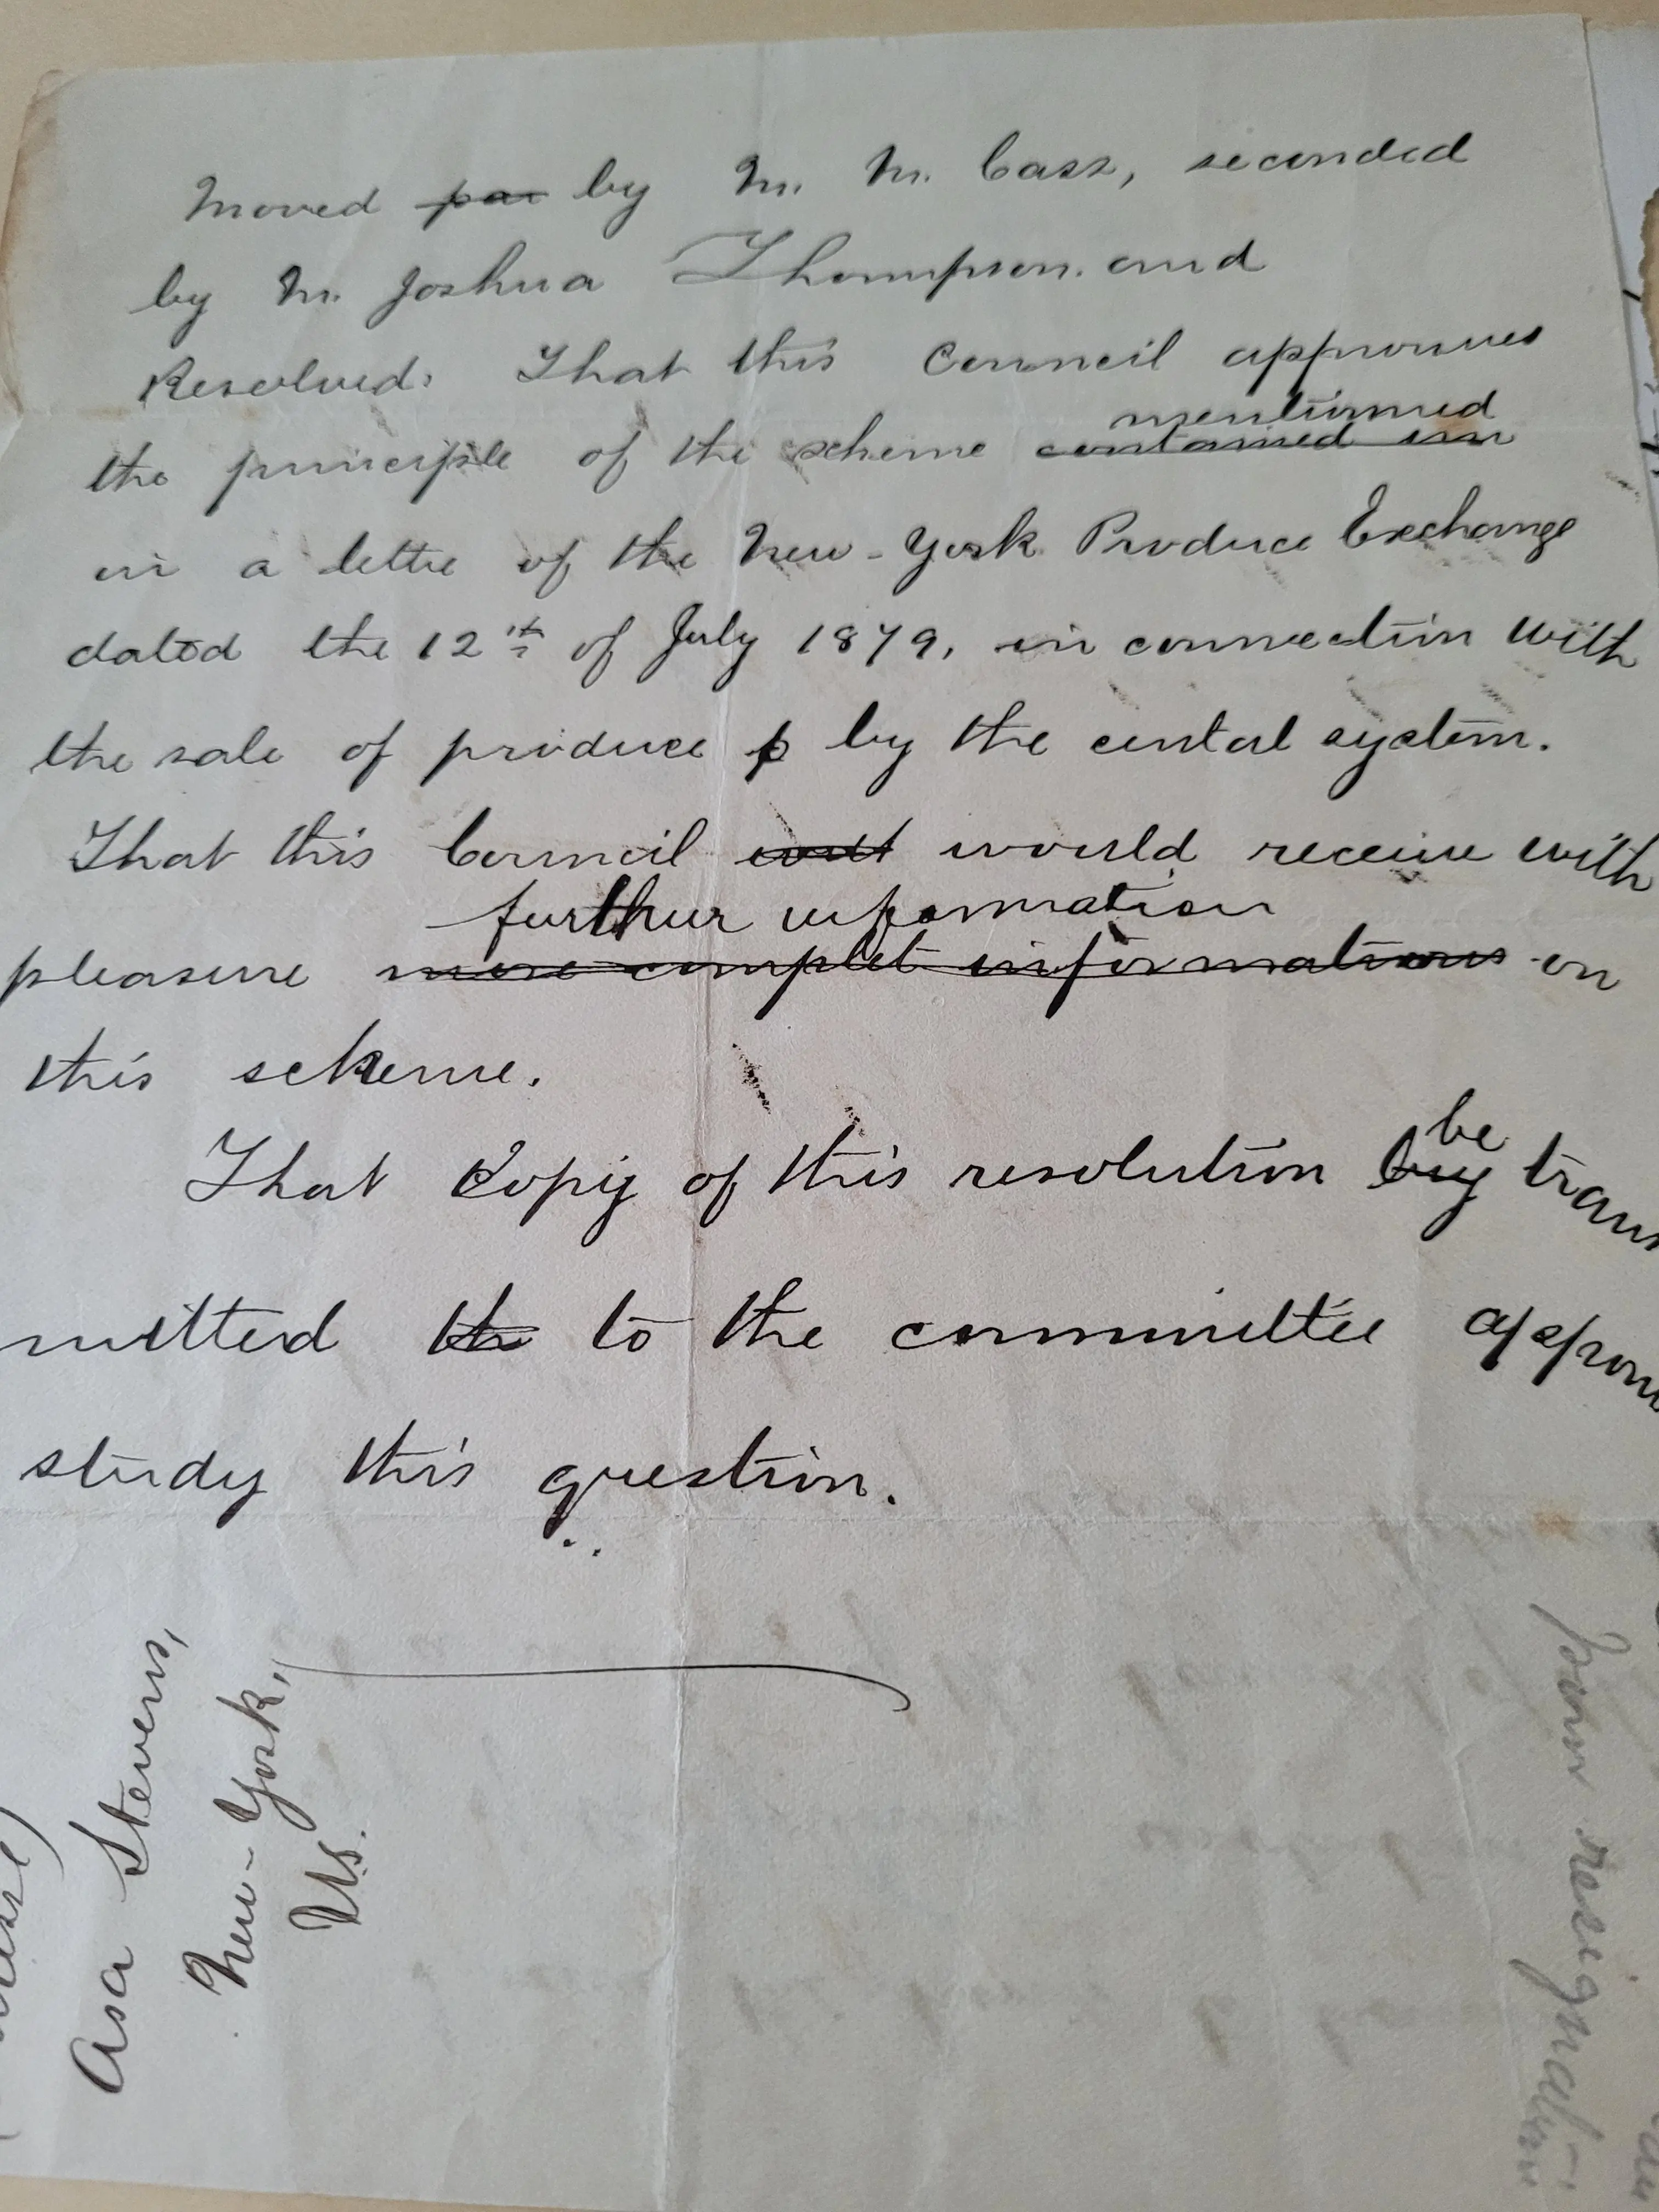 Moved par by M. M. Cass, seconded
by M. Joshua Thompson. and
Resolved: That this Council approuves
mentionned
the principle of the scheme contained inn
in a letter of the New-York Produce Exchange
dated the 12th of July 1879, in connection with
the sale of produce p by the cental system.
That this Council will would receive with
further information
pleasure more complet informations on
this scheme.
be
That Copy of this resolution by trans
mitted the to the committee
study this question.
Asa Stevens,
New-York,
U.S.
resignation